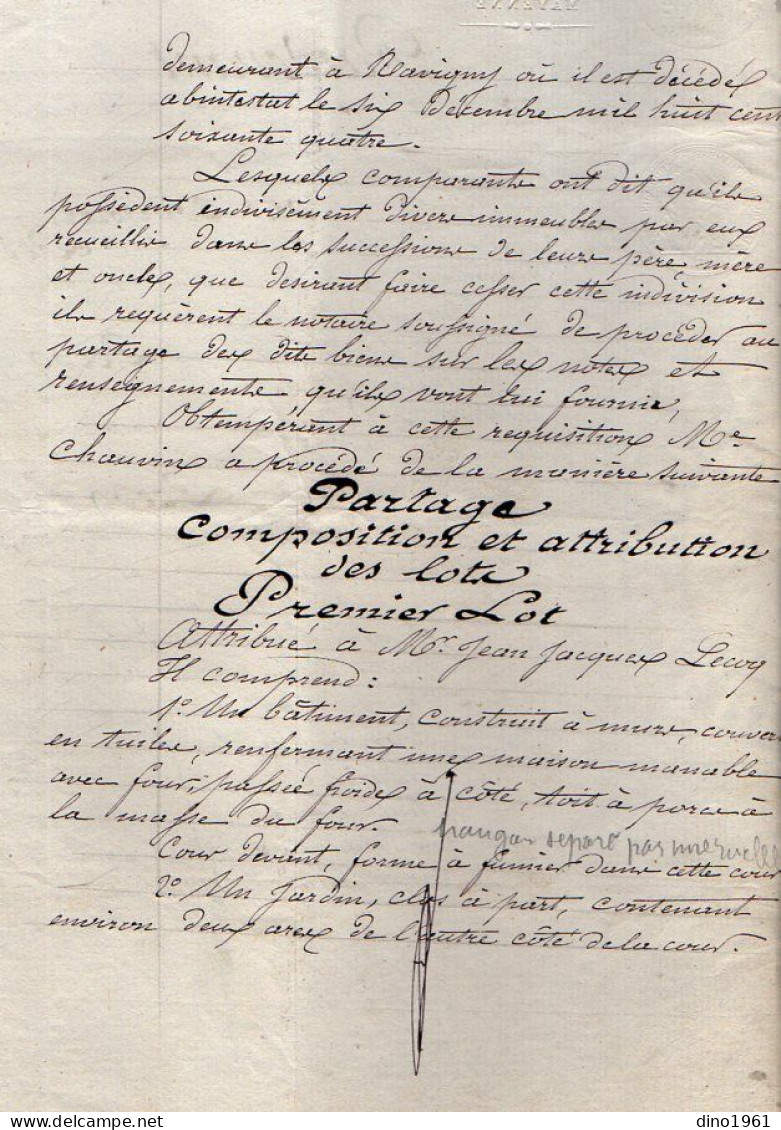 MAYENNE
demeurant à Ravigny où il est décédé
abintestat le six Décembre mil huit cent
soixante quatre.
Lesquels comparants ont dit qu'ils
possèdent indivisément divers immeubles par eux
recueillis dans les successions de leurs père, mère
et oncle, que desirant faire cesser cette indivision
ils requèrent le notaire soussigné de procéder au
partage des dits biens sur les notes et
renseignements qu'ils vont lui fournir,
Obtempérant à cette requisition, Me
Chauvin a procédé de la manière suivante
Partage
composition et attribution
des lots
Premier Lot
Attribué à Mr. Jean Jacques Lecoq
Il comprend:
1º Un bâtiment, construit à murs, couvert
en tuiles, renfermant une maison manable
avec four, passée froide à côté, toit à porcs à
la masse du four.
hangar séparé par une ruelle
Cour devant, forme à fumier dans cette cour
2º Un Jardin, clos à part, contenant
environ deux ares de l'autre côté de la cour.
dino1961